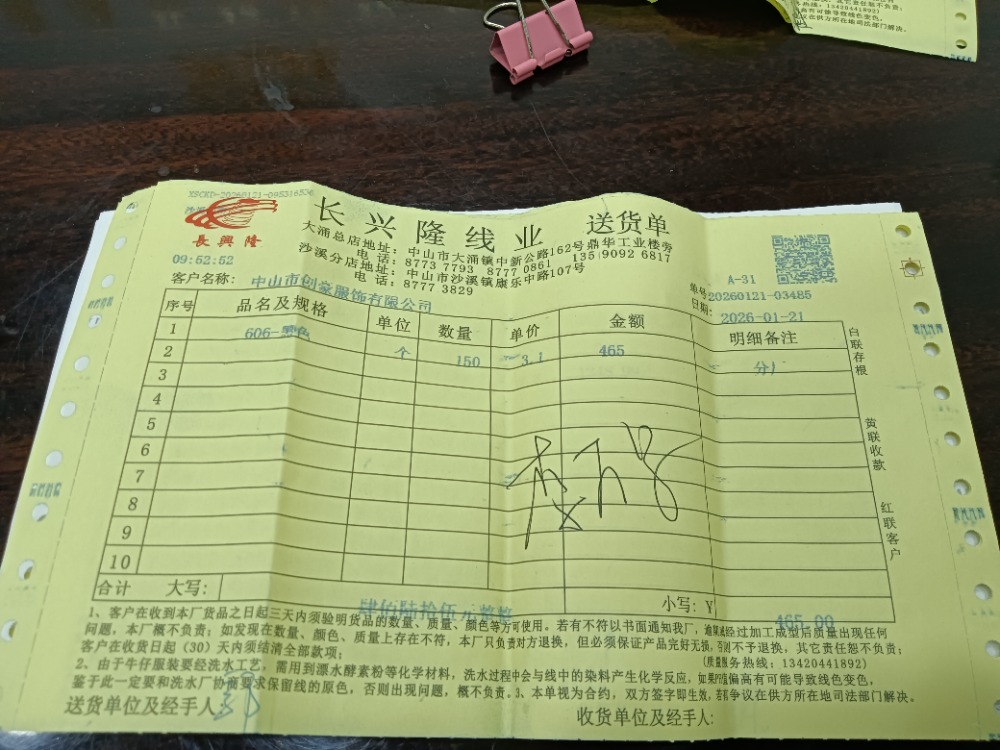 YSCKD-20260121-095316536
長興隆
长兴隆线业 送货单
大涌总店地址：中山市大涌镇中新公路162号鼎华工业楼旁
电话：8773 7793 8777 0861 135 9092 6817
沙溪分店地址：中山市沙溪镇康乐中路107号
电话：8777 3829
09:52:52
A-31
客户名称：中山市创豪服饰有限公司
单号：20260121-03485
日期：2026-01-21
序号 品名及规格 单位 数量 单价 金额 明细备注
1 606-黑色 个 150 3.1 465
2
3
4
5
6
7
8
9
10
合计 大写：肆佰陆拾伍元整 小写：Y 465.00
白联存根
黄联收款
红联客户
1、客户在收到本厂货品之日起三天内须验明货品的数量、质量、颜色等方可使用。若有不符以书面通知我厂，逾期或经过加工成型后质量出现任何
问题，本厂概不负责；如发现在数量、颜色、质量上存在不符，本厂只负责对方退换，但必须保证产品完好无损，否则不予退换，其它责任恕不负责；
客户在收货日起（30）天内须结清全部款项；
（质量服务热线：13420441892）
2、由于牛仔服装要经洗水工艺，需用到漂水酵素粉等化学材料，洗水过程中会与线中的染料产生化学反应，如果PH值偏高有可能导致线色变色，
鉴于此一定要和洗水厂协商要求保留线的原色，否则出现问题，概不负责。3、本单视为合约，双方签字即生效，若有争议在供方所在地司法部门解决。
送货单位及经手人：
收货单位及经手人：